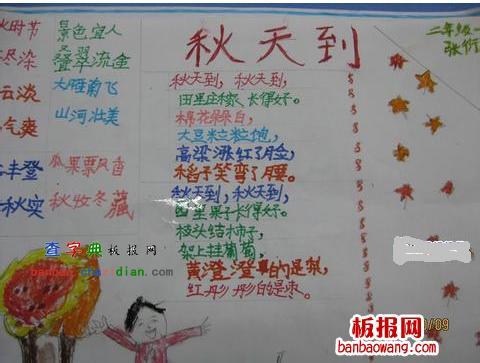 时节 景色宜人
尽染 叠翠流金
云淡 大雁南飞
气爽 山河壮美
丰登 瓜果飘香
秋实 秋收冬藏
秋天到
秋天到,秋天到,
田里庄稼长得好。
棉花朵朵白,
大豆粒粒饱,
高梁涨红了脸,
稻子笑弯了腰。
秋天到,秋天到,
里果子长得好。
枝头结柿子,
架上挂葡萄,
黄澄澄的是梨,
红彤彤的是枣。
二年级一
张
查字典板报网
banbao.chazidian.com
/09
板报网
banbaowang.com